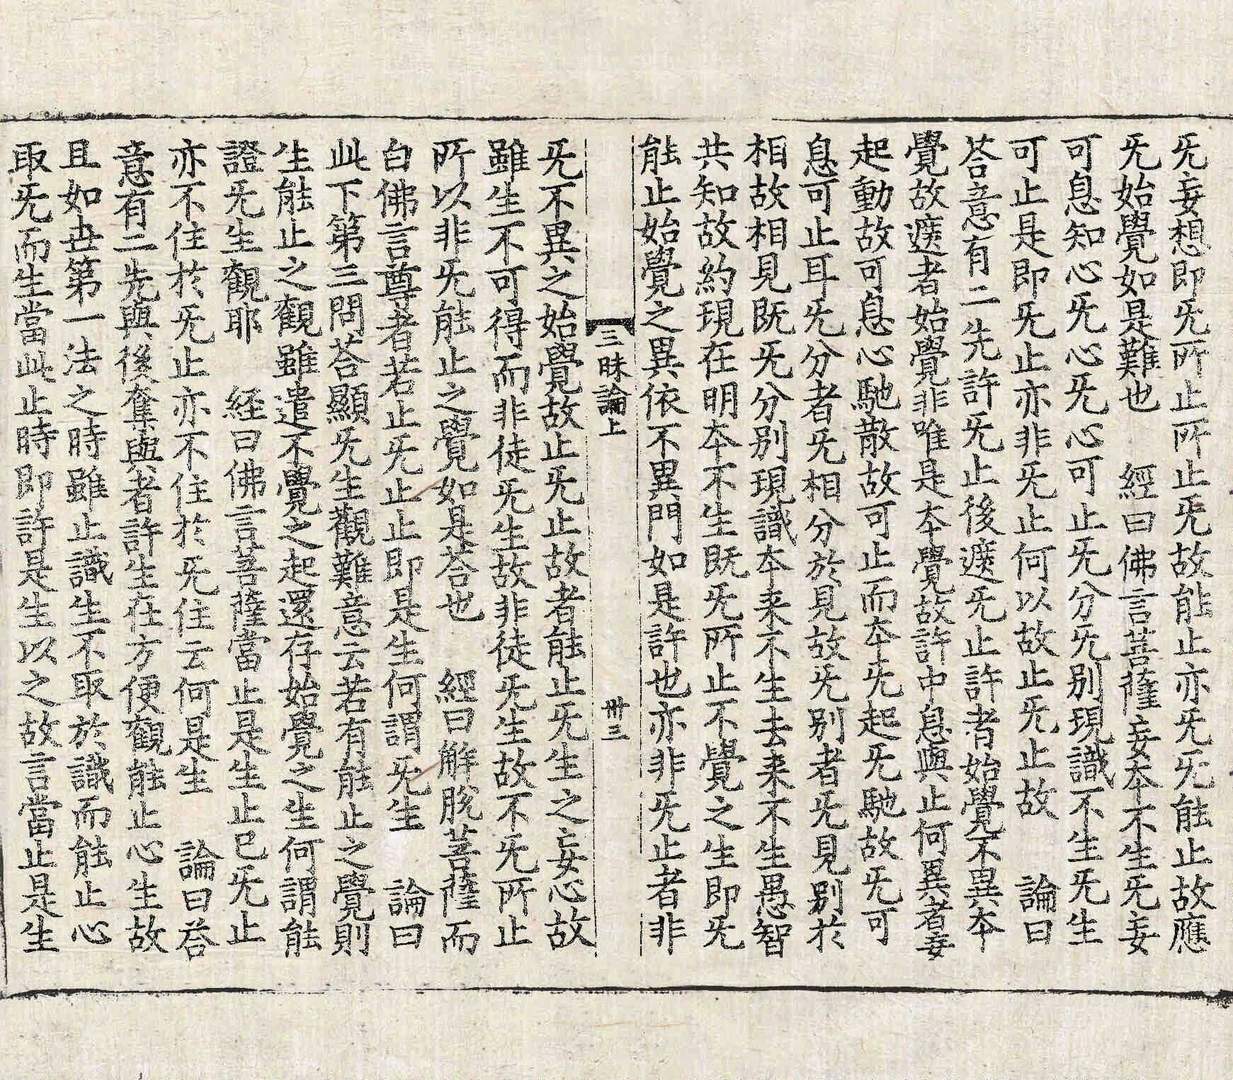 旡妄想即旡所止所止旡故能止亦旡旡能止故應
旡始覺如是難也　經曰佛言菩薩妄本不生旡妄
可息知心旡心旡心可止旡分旡別現識不生旡生
可止是即旡止亦非旡止何以故止旡止故　論曰
荅意有二先許旡止後遮旡止許者始覺不異本
覺故遮者始覺非唯是本覺故許中息與止何異者妄
起動故可息心馳散故可止而本旡起旡馳故旡可
息可止耳旡分者旡相分於見故旡別者旡見別於
相故相見既旡分別現識本来不生去来不生愚智
共知故約現在明本不生既旡所止不覺之生即旡
能止始覺之異依不異門如是許也亦非旡止者非
三昧論上　卅三
旡不異之始覺故止旡止故者能止旡生之妄心故
雖生不可得而非徒旡生故非徒旡生故不旡所止
所以非旡能止之覺如是荅也　經曰解脫菩薩而
白佛言尊者若止旡止止即是生何謂旡生　論曰
此下第三問荅顯旡生觀難意云若有能止之覺則
生能止之觀雖遣不覺之起還存始覺之生何謂能
證旡生觀耶　經曰佛言菩薩當止是生止已旡止
亦不住於旡止亦不住於旡住云何是生　論曰荅
意有二先與後奪與者許生在方便觀能止心生故
且如世第一法之時雖止識生不取於識而能止心
取旡而生當此止時即許是生以之故言當止是生